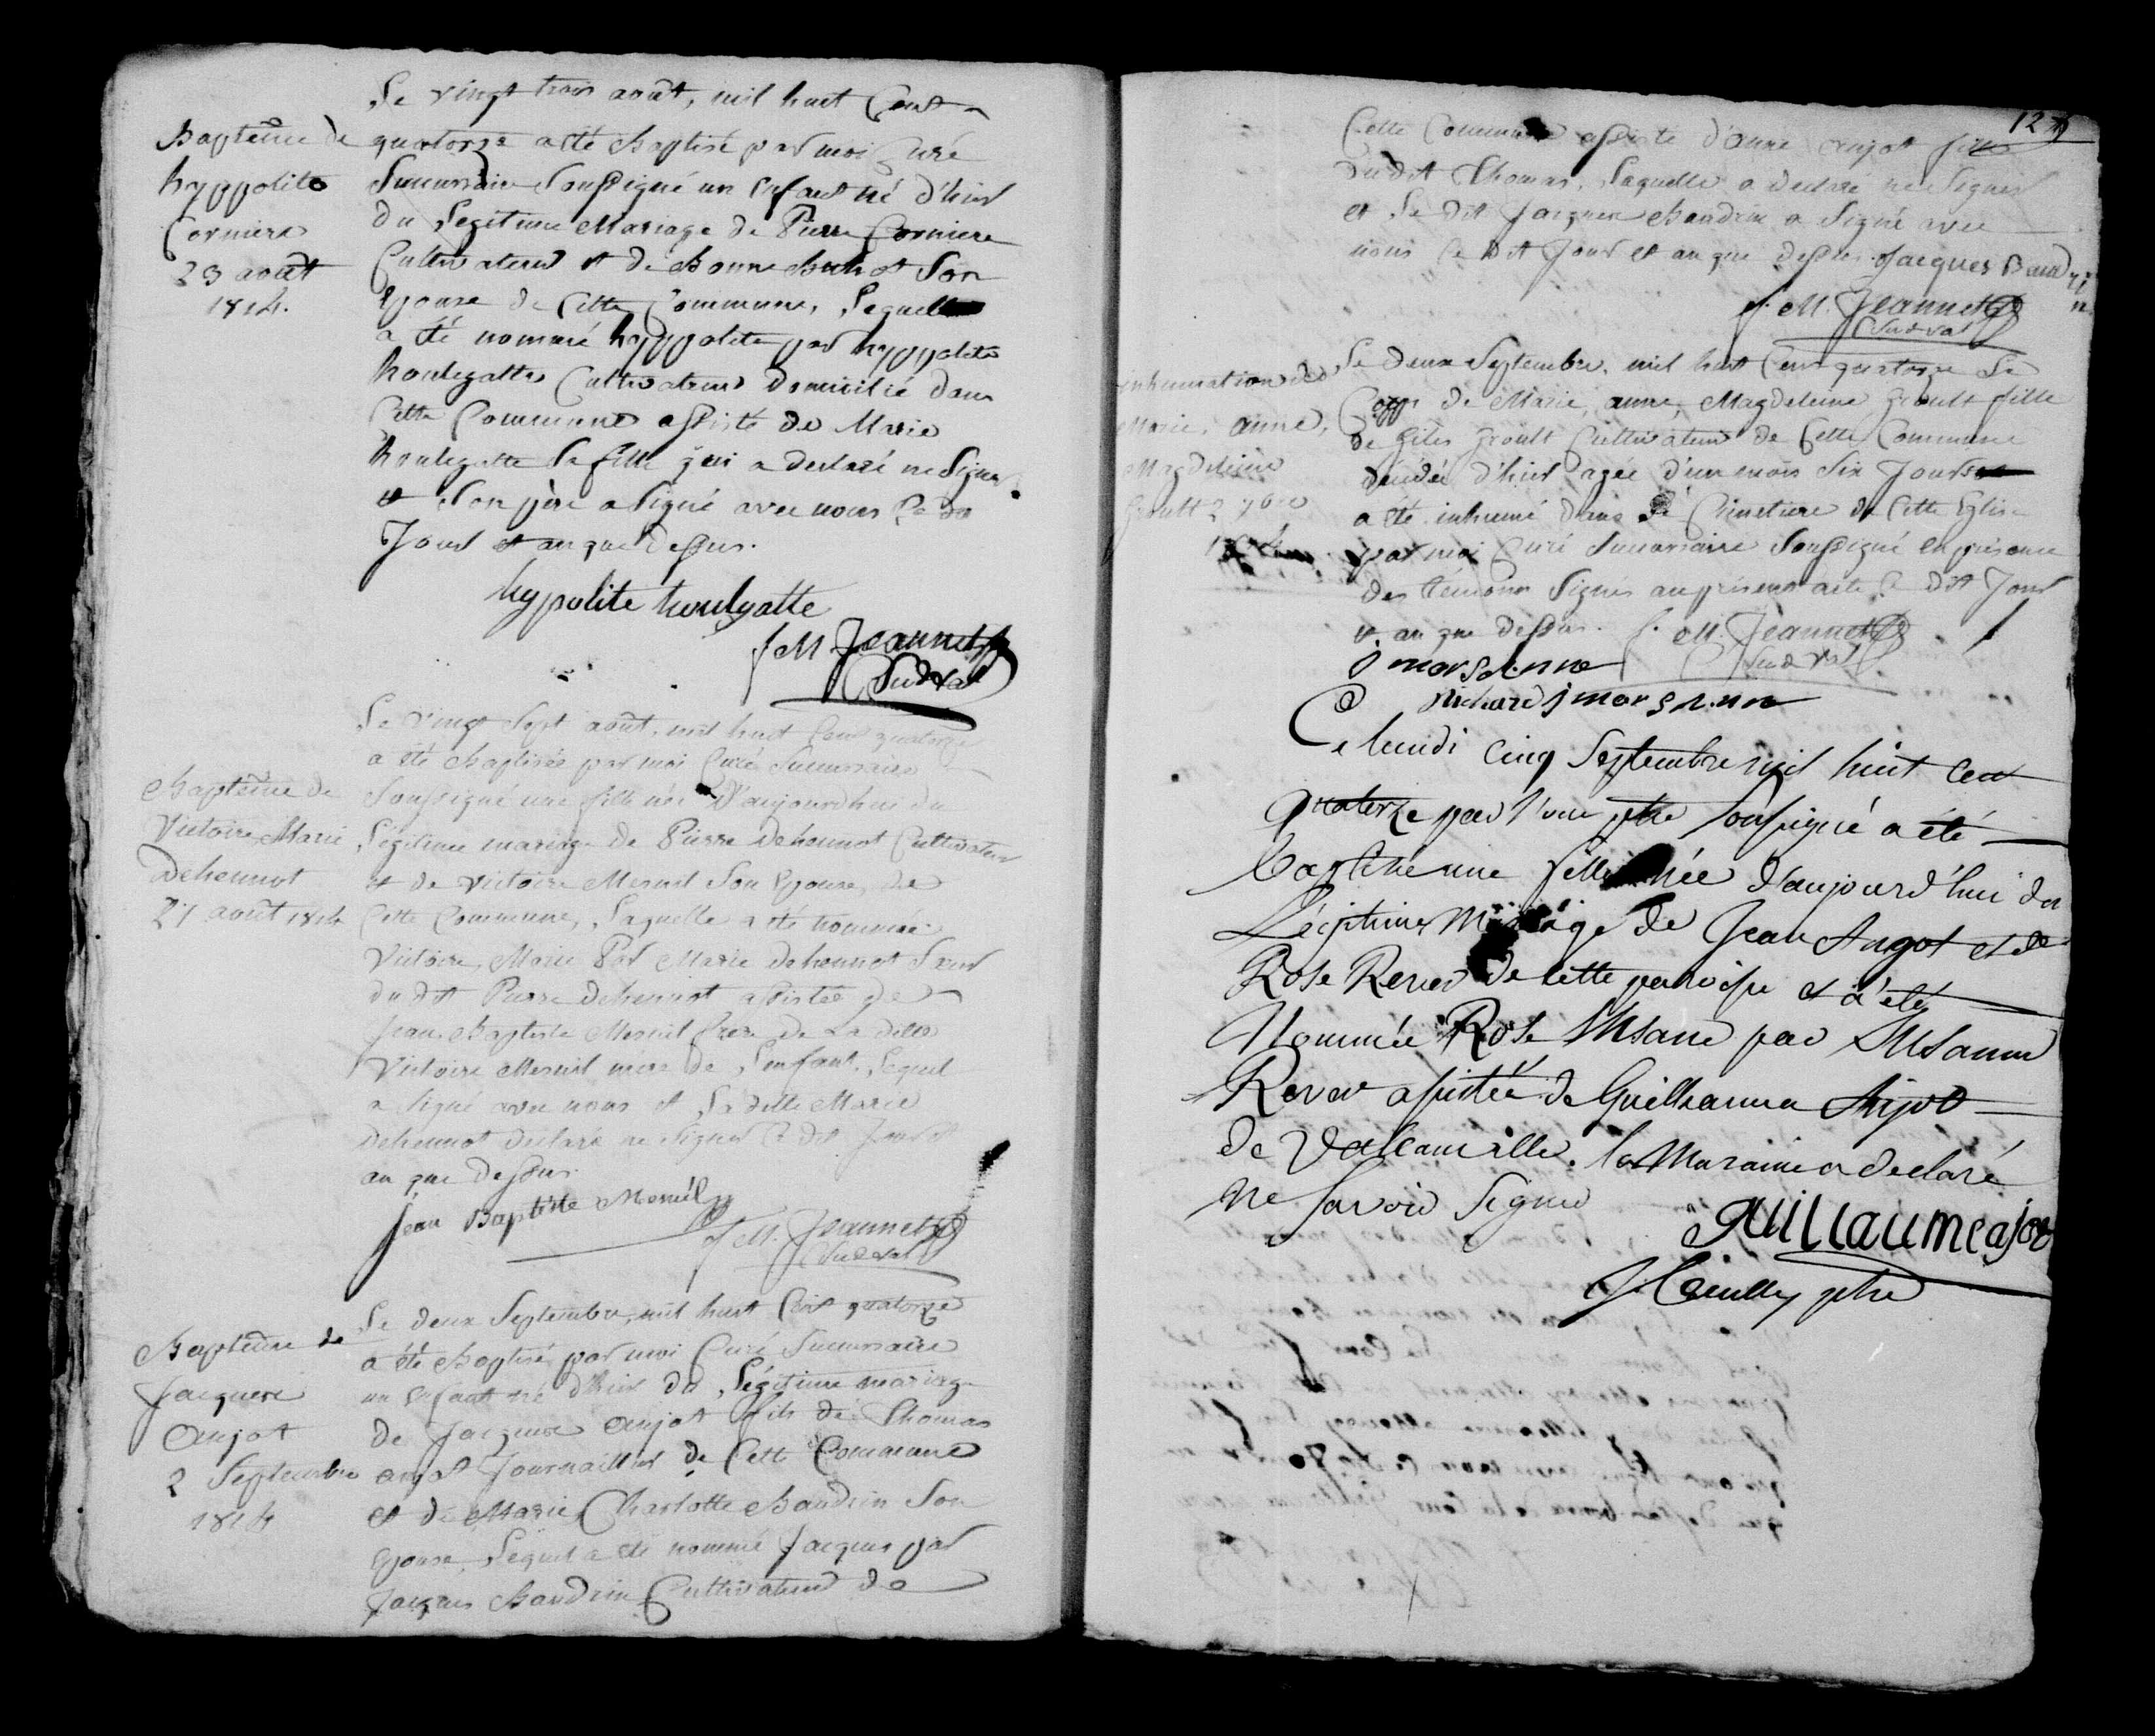 Le vingt trois août, mil huit Cent
Baptême de
hyppolite
Corniere
23 août
1814.
quatorze a été Baptisé par moi Curé
Succursaire Soussigné un Enfant né d'hier
du Legitime Mariage de Pierre Corniere
Cultivateur et de Bonne Buhot Son
Epouse de Cette Commune, Lequel
a été nommé hyppolite par hyppolite
houlegatte Cultivateur Domicilié dans
Cette Commune assisté de Marie
houlegatte Sa fille qui a declaré ne Signer
et Son père a Signé avec nous Ce dit
Jour et an que Dessus.
hypolite houlgatte
f. M. Jeannet
Sud Val
Le vingt Sept août, mil huit Cent quatorze
Baptême de
Victoire Marie
Dehennot
27 août 1814
a été Baptisée par moi Curé Succursaire
Soussigné une fille née d'aujourdhui du
Légitime mariage de Pierre Dehennot Cultivateur
et de Victoire Mesnil Son Epouse, de
Cette Commune, Laquelle a été nommée
Victoire, Marie Par Marie Dehennot Sœur
du dit Pierre Dehennot assistée de
Jean Baptiste Mesnil frere de La dite
Victoire Mesnil mère de L'enfant, Lequel
a Signé avec nous et La dite Marie
Dehennot declaré ne Signer Ce dit Jour et
an que Dessus.
Jean Baptiste Mesnil
f. M. Jeannet
Sud Val
Le deux Septembre, mil huit Cent quatorze
Baptême de
Jacques
Anjot
2 Septembre
1814
a été Baptisé par moi Curé Succursaire
un Enfant né d'hier du Légitime mariage
de Jacques Anjot fils de Thomas
Anjot Journaillier de Cette Commune
et de Marie Charlotte Baudrin Son
Epouse, Lequel a été nommé Jacques par
Jacques Baudrin Cultivateur de
12
Cette Commune assisté d'anne Anjot fille
du dit Thomas, Laquelle a declaré ne Signer
et Le dit Jacques Baudrin a Signé avec
nous Ce dit Jour et an que dessus. Jacques Baudrin
f. M. Jeannet
Sud Val
inhumation de
Marie, anne,
Magdeleine
Groult 2 7bre
1814
Le deux Septembre, mil huit Cent quatorze Le
Corps de Marie, anne, Magdeleine Groult fille
de Giles Groult Cultivateur de Cette Commune
décédée d'hier agée d'un mois Six Jours
a été inhumé dans Le Cimetiere de Cette Eglise
par moi Curé Succursaire Soussigné en présence
des témoins Signés au présent acte Ce dit Jour
et an que dessus. f. M. Jeannet
Sud Val
richard
Ce lundi cinq Septembre mil huit cent
quatorze par nous ptre soussigné a été
baptisée une fille née d'aujourd'hui du
Légitime Mariage de Jean Angot et de
Rose Rever de cette paroisse et a été
Nommée Rose Susane par Susanne
Rever assistée de Guillaume Anjot
de Valcanville. la Maraine a declaré
ne savoir Signer
Guillaume ajot
ptre